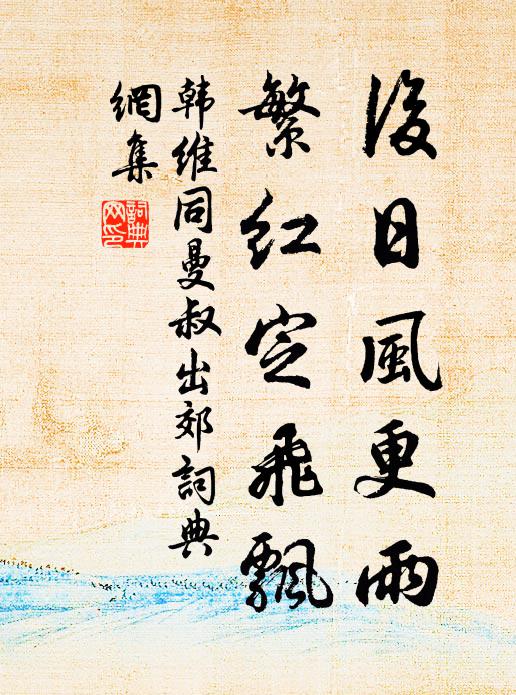 後日風更雨
繁红定飛飄
韩維同曼叔出郊詞典
網集
詞典網印